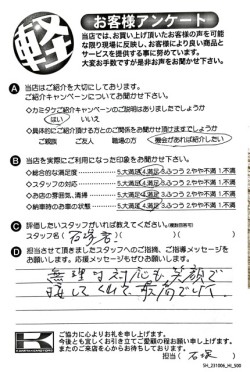 軽
お客様アンケート
当店では、お買い上げ頂いたお客様の声を可能
な限り現場に反映し、お客様により良い商品と
サービスを提供する事に努めています。
大変お手数ですが是非お声をお聞かせ下さい。
A 当店はご紹介を大切にしております。
ご紹介キャンペーンについてお聞かせ下さい。
◇カミタケご紹介キャンペーンのご説明はありましたでしょうか
はい いいえ
◇具体的にご紹介頂ける方とのご関係をお聞かせ頂けますでしょうか
ご親族 ご友人 職場の方 機会があれば紹介したい
B 当店を実際にご利用になった印象をお聞かせ下さい。
◇総合的な満足度 5.大満足 4.満足 3.ふつう 2.やや不満 1.不満
◇スタッフの対応 5.大満足 4.満足 3.ふつう 2.やや不満 1.不満
◇お店の雰囲気、清掃 5.大満足 4.満足 3.ふつう 2.やや不満 1.不満
◇納車時のお車の状態 5.大満足 4.満足 3.ふつう 2.やや不満 1.不満
C 評価したいスタッフがいれば教えてください。(複数回答可)
スタッフ名( )( )
D 担当させて頂きましたスタッフへのご指摘、ご指導メッセージを
お願いします。応援メッセージもぜひお願いします。
無理な対応も笑顔で
接してくれて、最高でした。
K
ご協力に心よりお礼を申し上げます。
今後とも宜しくお引き立てご愛顧の程お願い申し上げます。
またのご来店を心からお待ちしております。
担当( )
SH_231006_HI_500